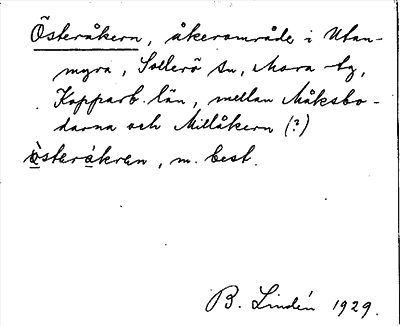 Österåkern, åkerområde i Utan-
myra, Sollerö sn, Mora tg,
Kopparb. län, mellan Måksbo-
darna och Millåkern (?)
òstərákren, m. best.
B. Lindén 1929.